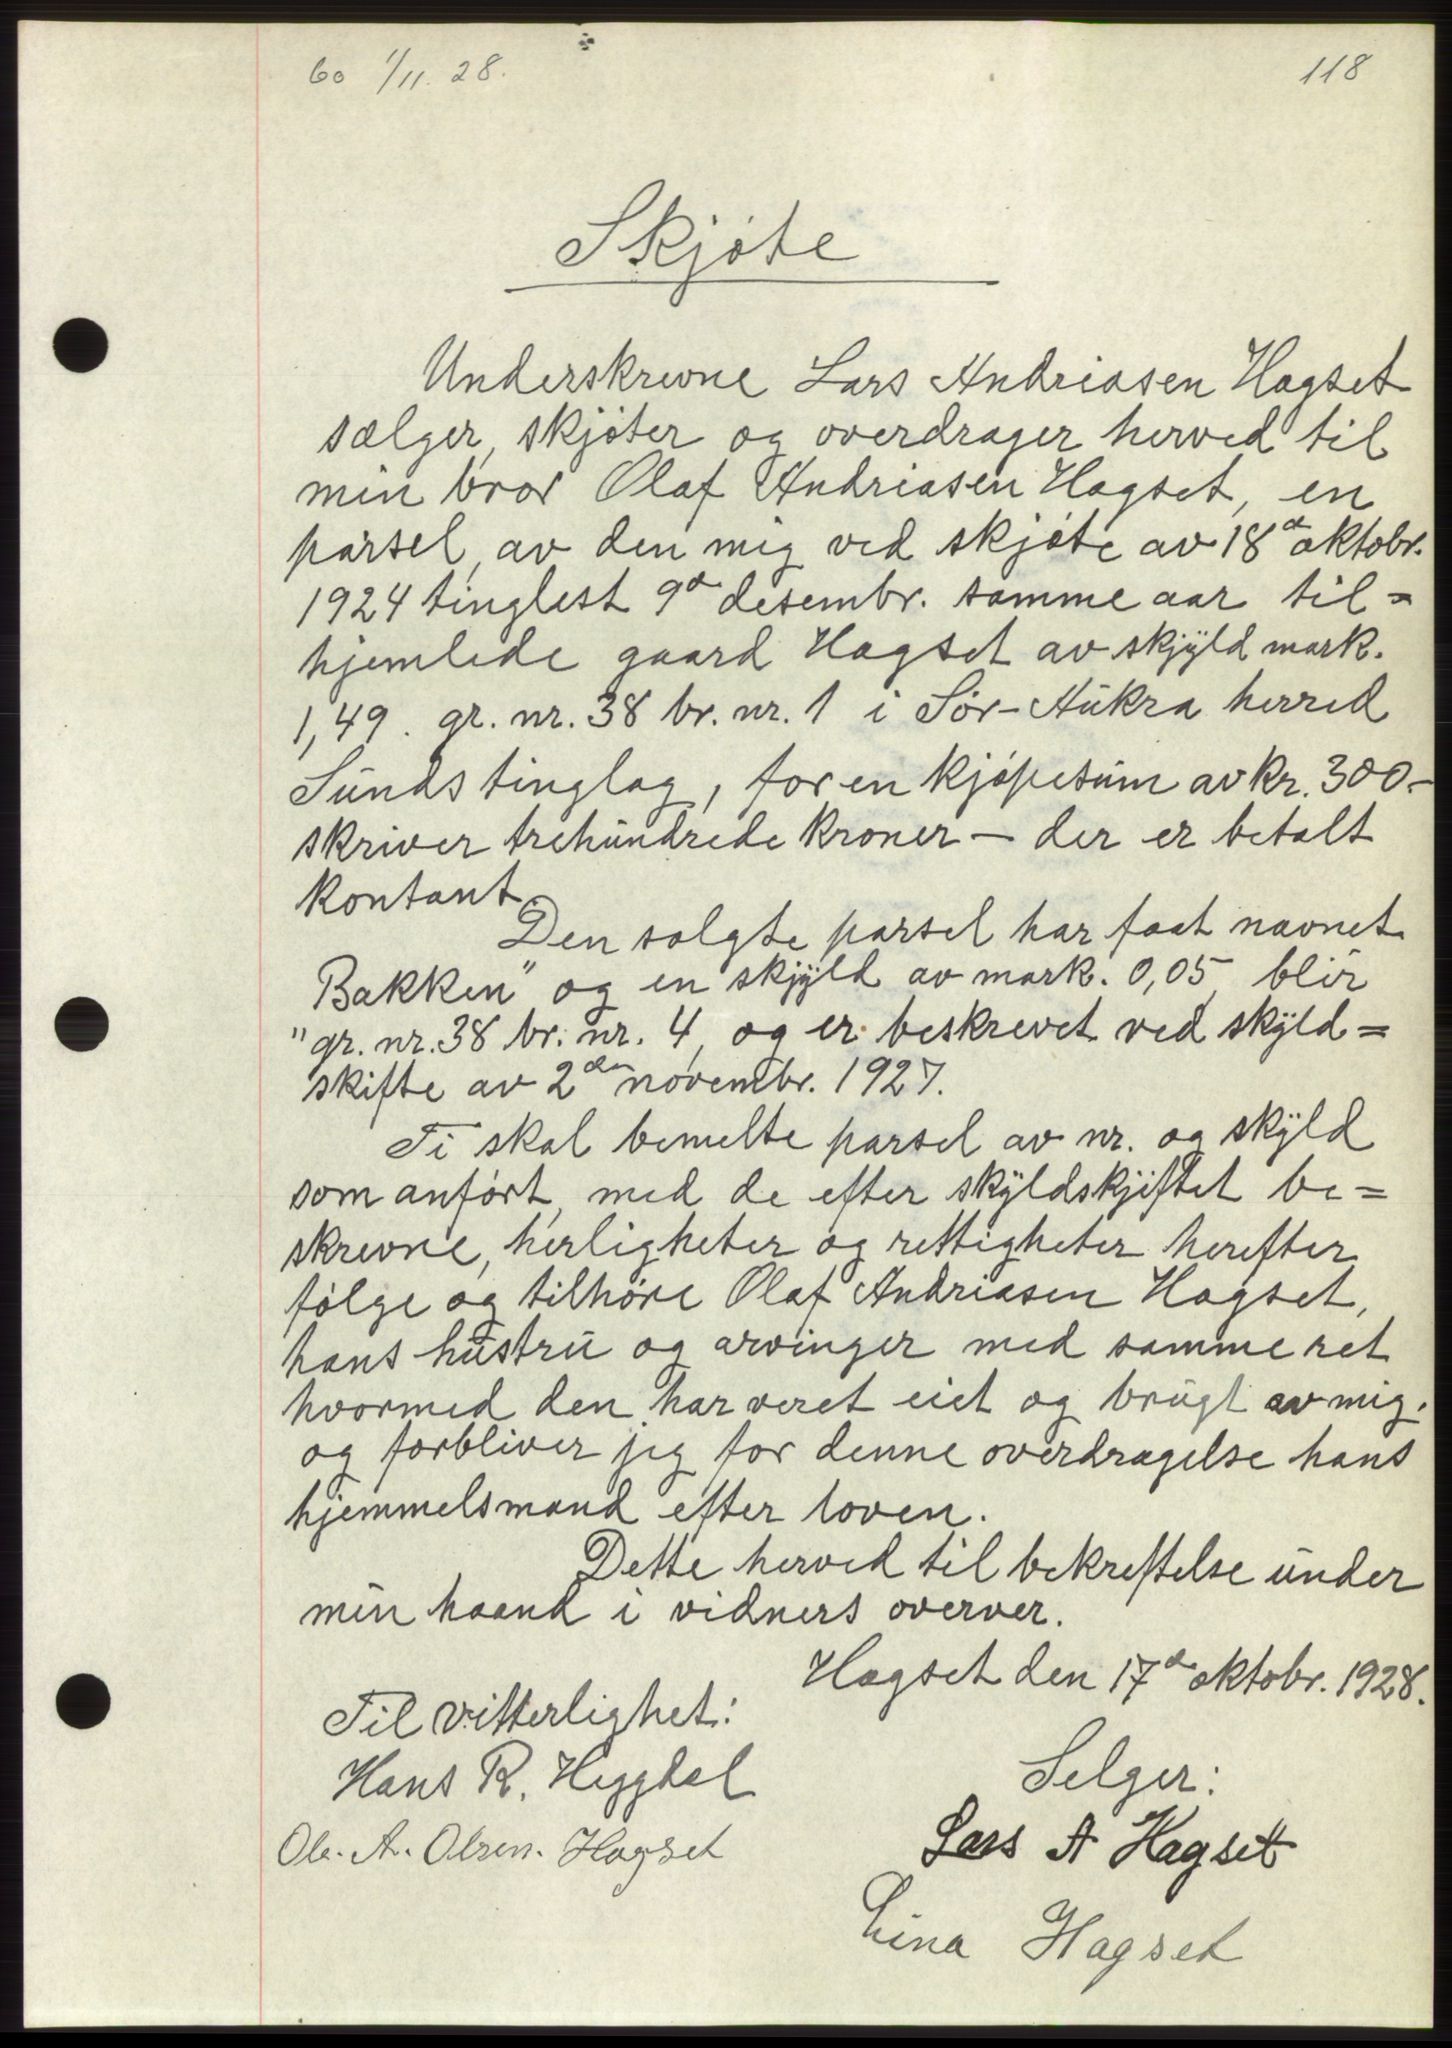 60 1/11. 28.
118
Skjøte
Underskrevne Lars Andreasen Hagset
sælger, skjøter og overdrager herved til
min bror Olaf Andreasen Hagset, en
parsel, av den mig ved skjøte av 18d oktobr.
1924 tinglest 9d desembr. samme aar til=
hjemlede gaard Hagset av skjyld mark.
1,49. gr. nr. 38 br. nr. 1 i Sør-Aukra herred
Sunds tinglag, for en kjøpesum av kr. 300.-
skriver trehundrede kroner - der er betalt
kontant.
Den solgte parsel har faat navnet
"Bakken" og en skjyld av mark. 0,05, blir
gr. nr. 38 br. nr. 4, og er beskrevet ved skyld=
skifte av 2den novembr. 1927.
Ti skal bemelte parsel av nr. og skyld
som anført, med de efter skyldskjiftet be=
skrevne, herligheter og rettigheter herefter
følge og tilhøre Olaf Andreasen Hagset,
hans hustru og arvinger med samme ret
hvormed den har veret eiet og brugt av mig.
og forbliver jeg for denne overdragelse hans
hjemmelsmand efter loven.
Dette herved til bekreftelse under
min haand i vidners overver.
Hagset den 17d oktobr. 1928.
Til vitterlighet:
Hans R. Heggdal
Ole. A. Olsen. Hagset
Selger:
Lars A Hagset
Lina Hagset